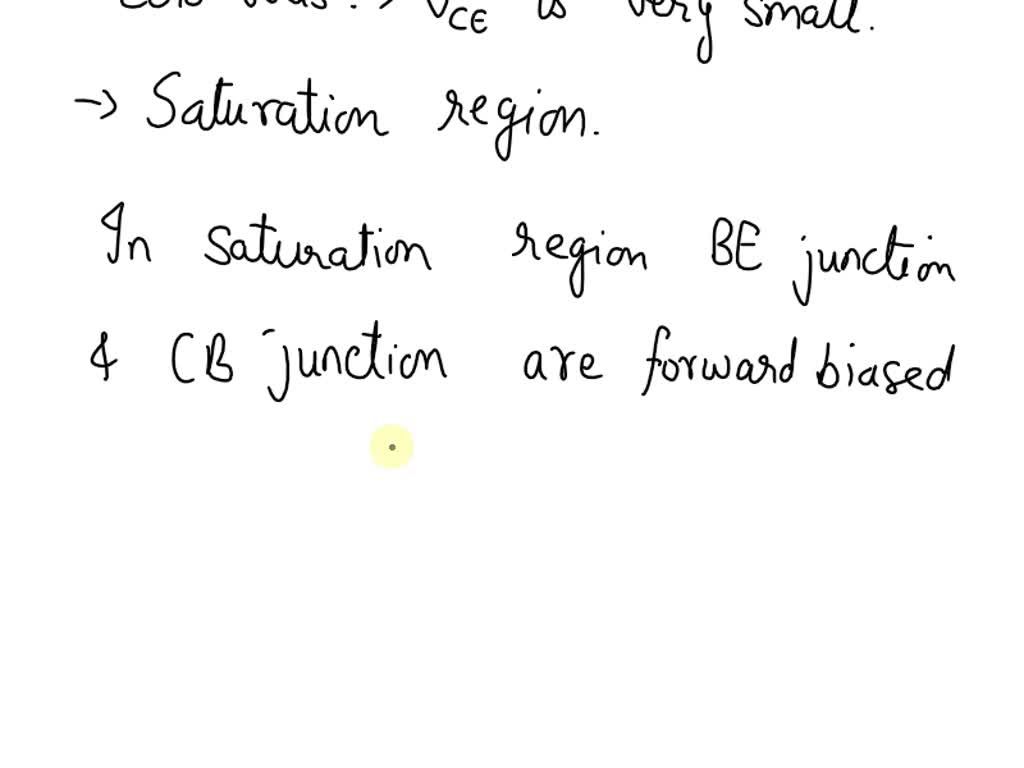 V_CE is very small.
→ Saturation region.
In saturation region BE junction
& CB junction are forward biased